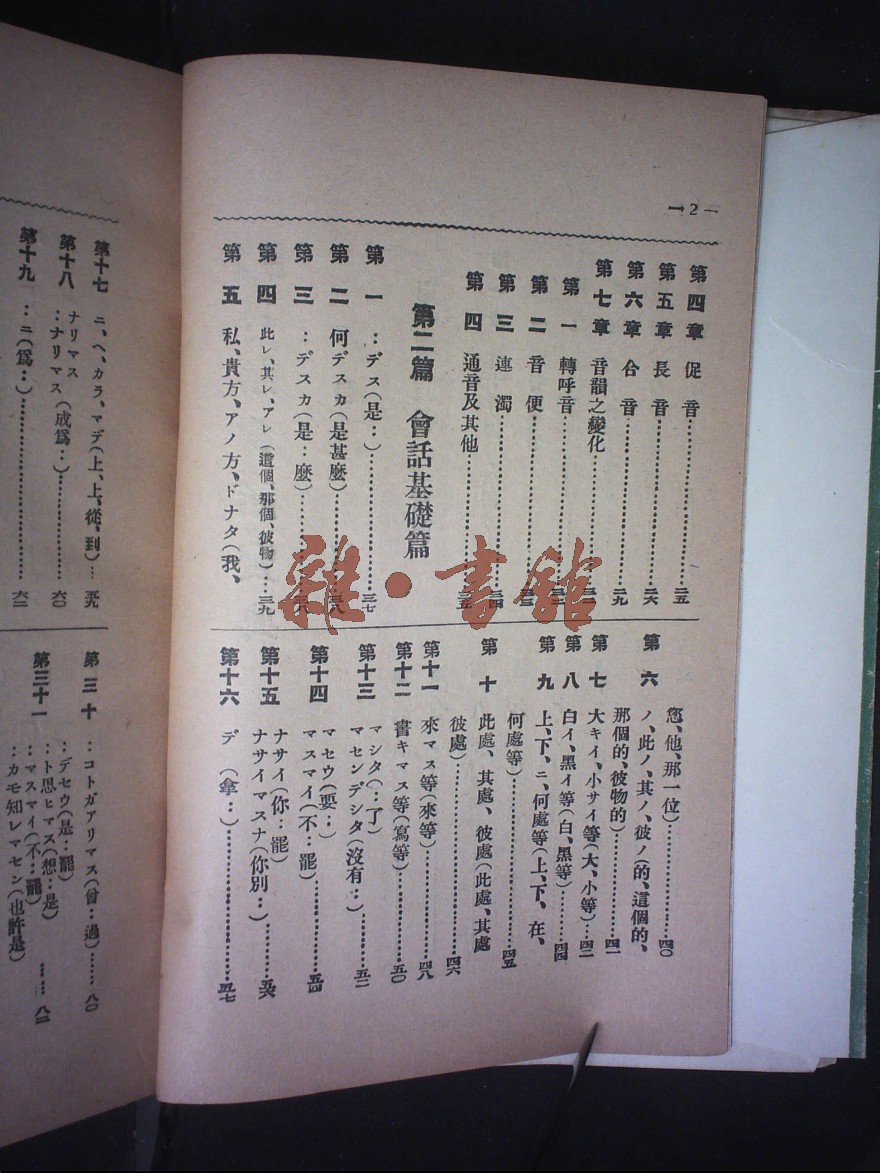 — 2 —
第四章 促音……………二五
第五章 長音……………二六
第六章 合音……………二九
第七章 音韻之變化……………
第一 轉呼音……………
第二 音便……………
第三 連濁……………
第四 通音及其他……………
第二篇 會話基礎篇
第一 :デス(是:)……………三七
第二 何デスカ(是甚麼)……………三八
第三 :デスカ(是:麼)……………
第四 此レ、其レ、アレ(這個、那個、彼物)…三九
第五 私、貴方、アノ方、ドナタ(我、
您、他、那一位)……………四〇
第六 ノ、此ノ、其ノ、彼ノ(的、這個的、
那個的、彼物的)……………四一
第七 大キイ、小サイ等(大、小等)…四二
第八 白イ、黑イ等(白、黑等)………四四
第九 上、下、ニ、何處等(上、下、在、
何處等)……………四五
第十 此處、其處、彼處(此處、其處
彼處)……………四六
第十一 來マス等(來等)……………四八
第十二 書キマス等(寫等)……………五〇
第十三 マシタ(:了)
マセンデシタ(沒有:)………五二
第十四 マセウ(要:)
マスマイ(不:罷)……………五四
第十五 ナサイ(你:罷)
ナサイマスナ(你別:)………五六
第十六 デ(拿:)……………五七
第十七 ニ、ヘ、カラ、マデ(上、上、從、到)…五九
第十八 ナリマス
:ナリマス(成爲:)……………六〇
第十九 :ニ(爲:)……………六二
第三十 :コトガアリマス(曾:過)……八〇
第三十一 :デセウ(是:罷)
:ト思ヒマス(想:是)
:マスマイ(不:罷)……八二
:カモ知レマセン(也許是)
雜·書館